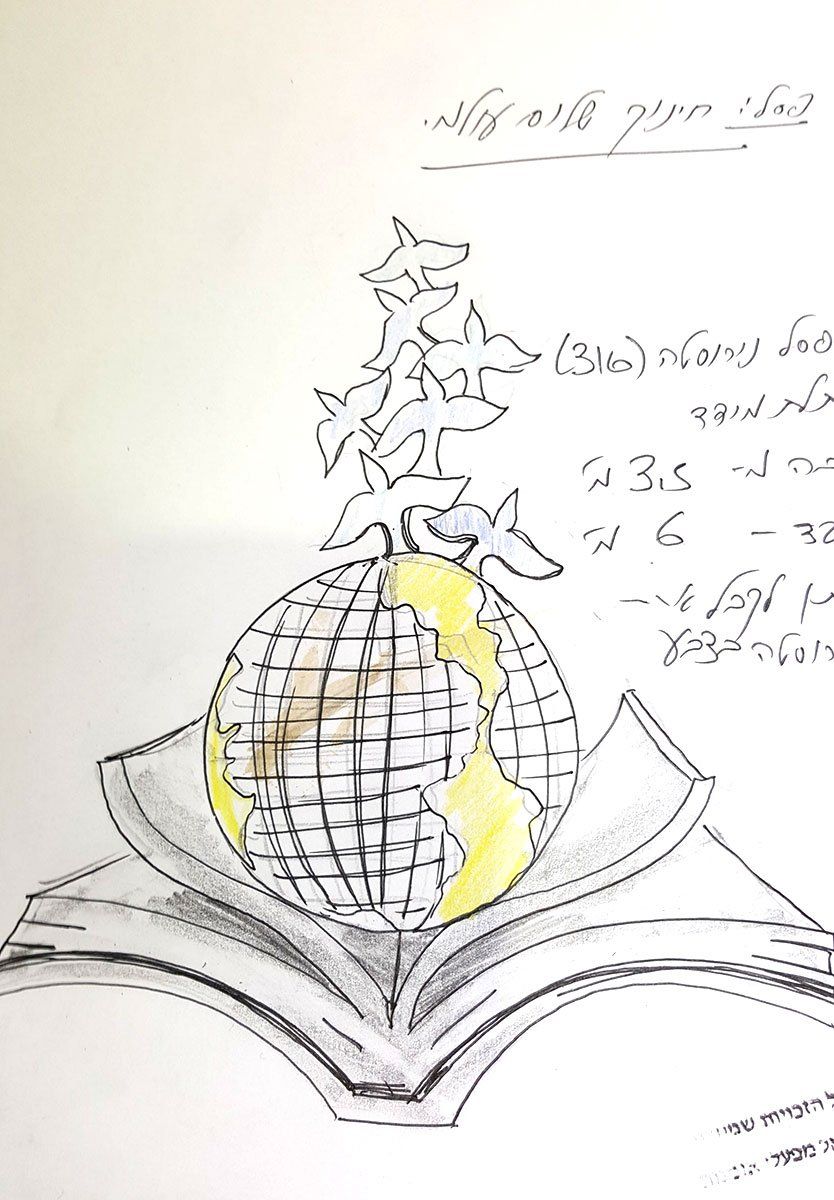 פסל: חינוך שלום עולמי.
פסל נירוסטה (316)
תלת מימד
בה מ- מ'
עד – 6 מ'
תן לקבל
רוסטה בצבע
ל הזכויות שמו
מפעלי